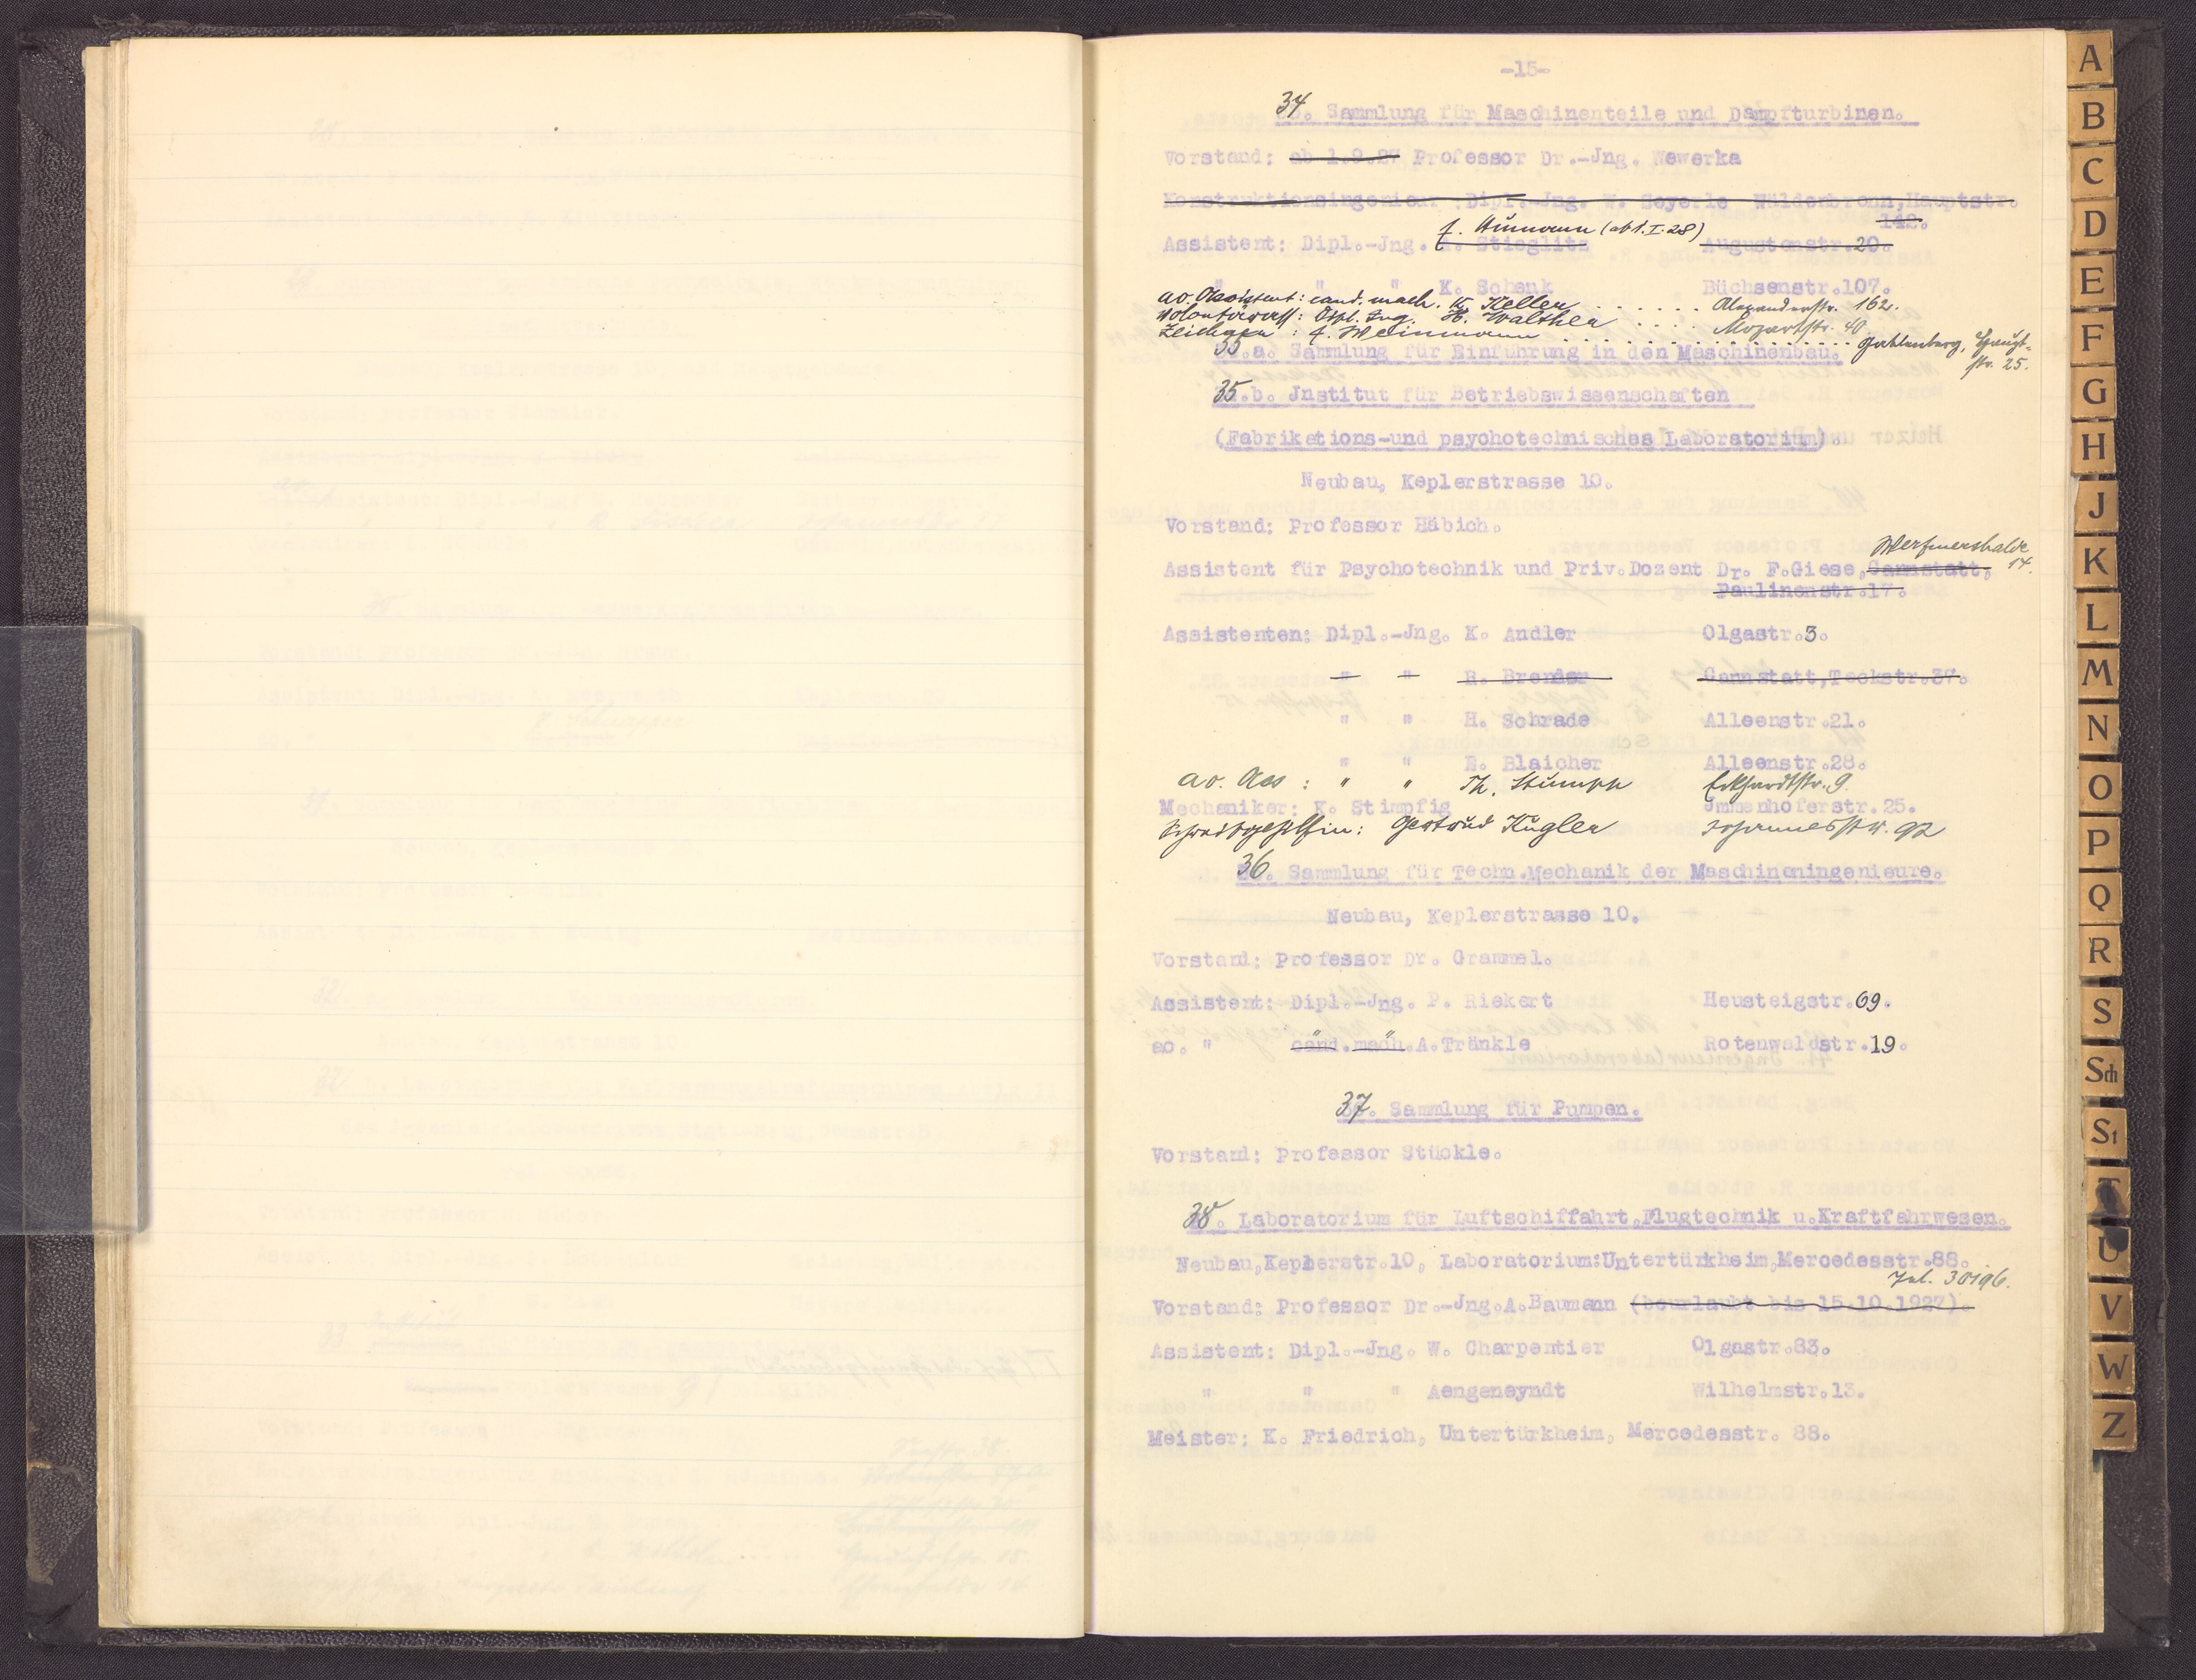 -15-
34. Sammlung für Maschinenteile und Dampfturbinen.
Vorstand: ab 1.9.27 Professor Dr.-Jng. Wewerka
Konstruktionsingenieur Dipl.-Jng. W. Seyerle Wäldenbronn, Hauptstr.
142.
f. (ab 1. I. 28)
Assistent: Dipl.-Jng. Stieglitz Augustenstr. 20.
" " " K. Schenk Büchsenstr. 107.
ao. Assistent: cand. mach. K. Keller . . . . . . Alexanderstr. 162.
Dipl. Ing. H. Walther . . . . Mozartstr. 40.
f. Weinmann . . . . . . . . . . Gablenberg, Haupt-
str. 25.
35.a. Sammlung für Einführung in den Maschinenbau.
35.b. Jnstitut für Betriebswissenschaften
(Fabrikations-und psychotechnisches Laboratorium).
Neubau, Keplerstrasse 10.
Vorstand: Professor Häbich.
Werfmershalde
14.
Assistent für Psychotechnik und Priv.Dozent Dr. F.Giese, Cannstatt,
Paulinenstr. 17.
Assistenten: Dipl.-Jng. K. Andler Olgastr. 3.
" " R. Brenden Cannstatt, Teckstr. 37.
" " H. Schrade Alleenstr. 21.
" " E. Blaicher Alleenstr. 28.
ao. Ass : " " Th. Stumpp Eckhardtstr. 9.
Mechaniker: K. Stimpfig Jmmenhoferstr. 25.
Schreibgehilfin: Gertrud Kugler Johannesstr. 92
36. Sammlung für Techn.Mechanik der Maschineningenieure.
Neubau, Keplerstrasse 10.
Vorstand: Professor Dr. Grammel.
Assistent: Dipl.-Jng. P. Riekert Heusteigstr. 69.
ao. " cand. mach. A. Tränkle Rotenwaldstr. 19.
37. Sammlung für Pumpen.
Vorstand: Professor Stückle.
38. Laboratorium für Luftschiffahrt, Flugtechnik u. Kraftfahrwesen.
Neubau, Keplerstr. 10, Laboratorium: Untertürkheim, Mercedesstr. 88.
Tel. 30196.
Vorstand: Professor Dr.-Jng. A. Baumann (beurlaubt bis 15.10.1927).
Assistent: Dipl.-Jng. W. Charpentier Olgastr. 83.
" " " Aengeneyndt Wilhelmstr. 13.
Meister: K. Friedrich, Untertürkheim, Mercedesstr. 88.
A
B
C
D
E
F
G
H
J
K
L
M
N
O
P
Q
R
S
Sch
St
T
U
V
W
Z